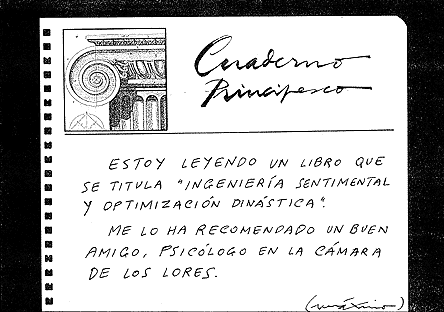 Cuaderno
Principesco
ESTOY LEYENDO UN LIBRO QUE
SE TITULA "INGENIERÍA SENTIMENTAL
Y OPTIMIZACIÓN DINÁSTICA".
ME LO HA RECOMENDADO UN BUEN
AMIGO, PSICÓLOGO EN LA CÁMARA
DE LOS LORES.
(máximo)